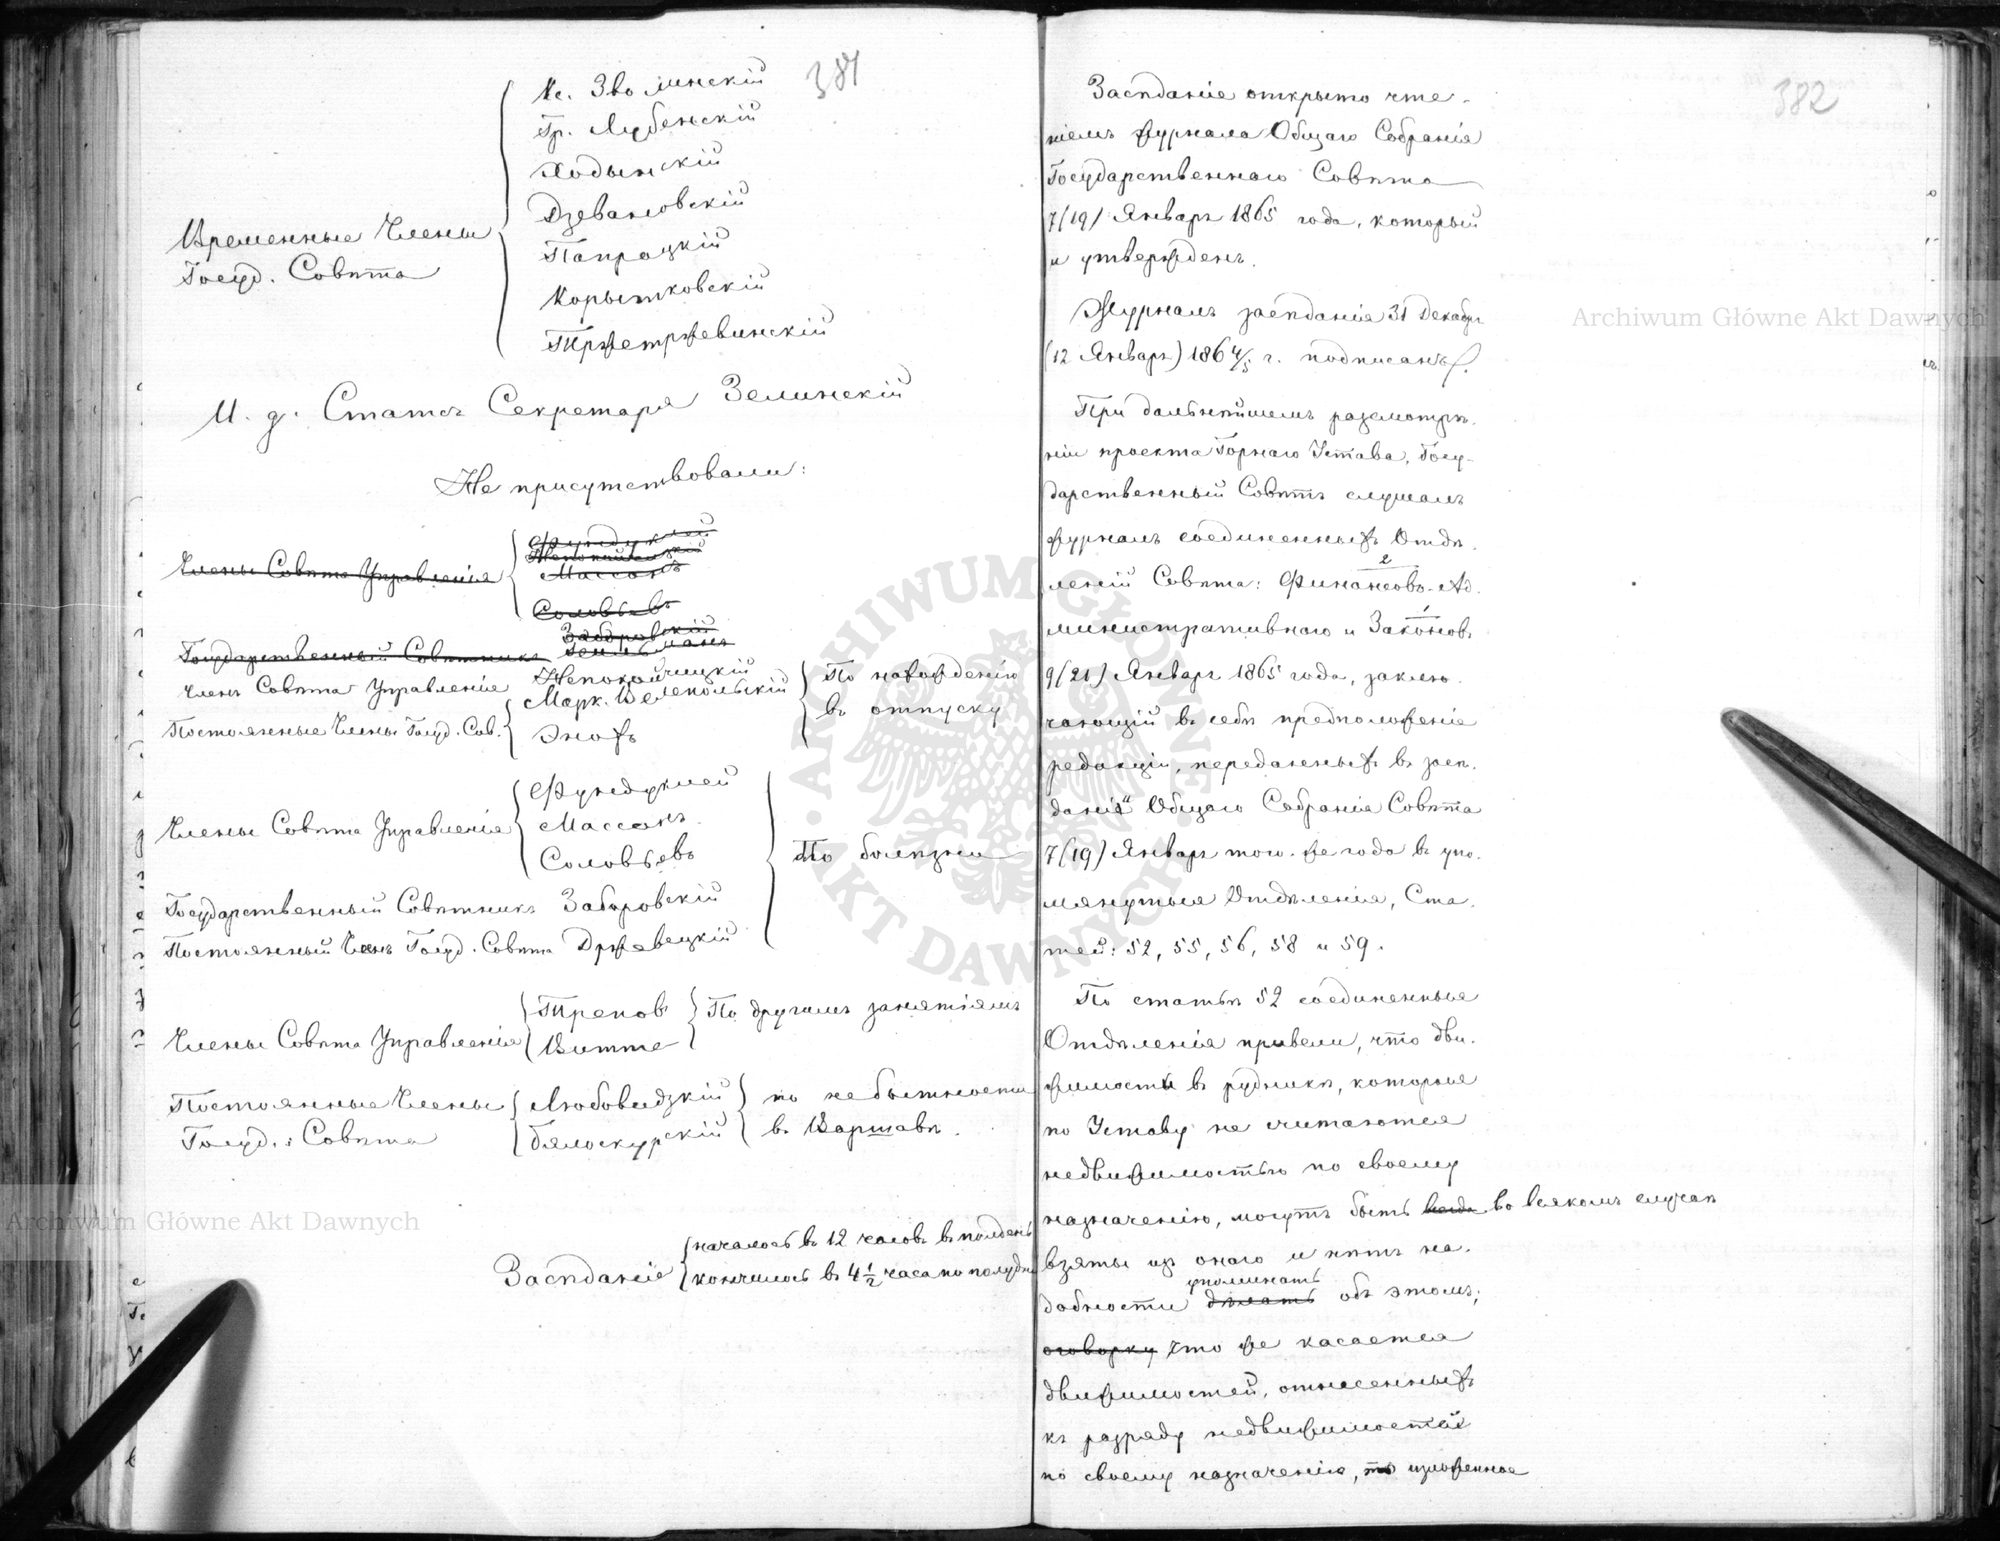 381
Кс. Зволинскій
Гр. Лубенскій
Ходынскій
Дзевановскій
Папроцкій
Корытковскій
Тржетржевинскій
Временные Члены
Госуд. Совѣта
И. д. Статсъ Секретаря Зелинскій
Не присутствовали:
Члены Совѣта Управленія
Фундуклей
Непокойчицкій
Массонъ
Соловьевъ
Государственный Совѣтникъ
Заборовскій
Членъ Совѣта Управленія Непокойчицкій
Постоянные Члены Госуд. Сов. Марк. Велепольскій
Энохъ
По нахожденію
въ отпуску
Члены Совѣта Управленія
Фундуклей
Массонъ
Соловьевъ
Государственный Совѣтникъ Заборовскій
Постоянный Членъ Госуд. Совѣта Држевецкій
По болѣзни
Члены Совѣта Управленія
Треповъ
Витте
По другимъ занятіямъ
Постоянные Члены
Госуд. Совѣта
Любовидзкій
Бялоскурскій
по небытности
въ Варшавѣ.
Засѣданіе
началось въ 12 часовъ въ полдень
кончилось въ 4 1/2 часа по полудни
382
Засѣданіе открыто чте-
ніемъ журнала Общаго Собранія
Государственнаго Совѣта
7/19/ Январѣ 1865 года, который
и утвержденъ.
Журналъ засѣданія 31 Декабря
(12 Январѣ) 1864/5 г. подписанъ.
При дальнѣйшемъ разсмотрѣ-
ніи проекта Горнаго Устава, Госу-
дарственный Совѣтъ слушалъ
журналъ соединенныхъ Отдѣ-
2
леній Совѣта: Финансово-Ад-
1
министративнаго и Законовъ
9/21/ Январѣ 1865 года, заклю-
чающій въ себѣ предположеніе
редакціи, переданныхъ въ засѣ-
даніи Общаго Собранія Совѣта
7/19/ Январѣ того-же года въ упо-
мянутыя Отдѣленія, Ста-
тей: 52, 55, 56, 58 и 59.
По статьѣ 52 соединенныя
Отдѣленія привели, что дви-
жимости въ рудникѣ, которыя
по Уставу не считаются
недвижимостью по своему
назначенію, могутъ быть во всякомъ случаѣ
взяты изъ онаго и нѣтъ на-
добности дѣлать упоминать объ этомъ;
оговорку что же касается
движимостей, отнесенныхъ
къ разряду недвижимостей
по своему назначенію, то изложенное
Archiwum Główne Akt Dawnych
Archiwum Główne Akt Dawnych
ARCHIWUM GŁÓWNE
AKT DAWNYCH